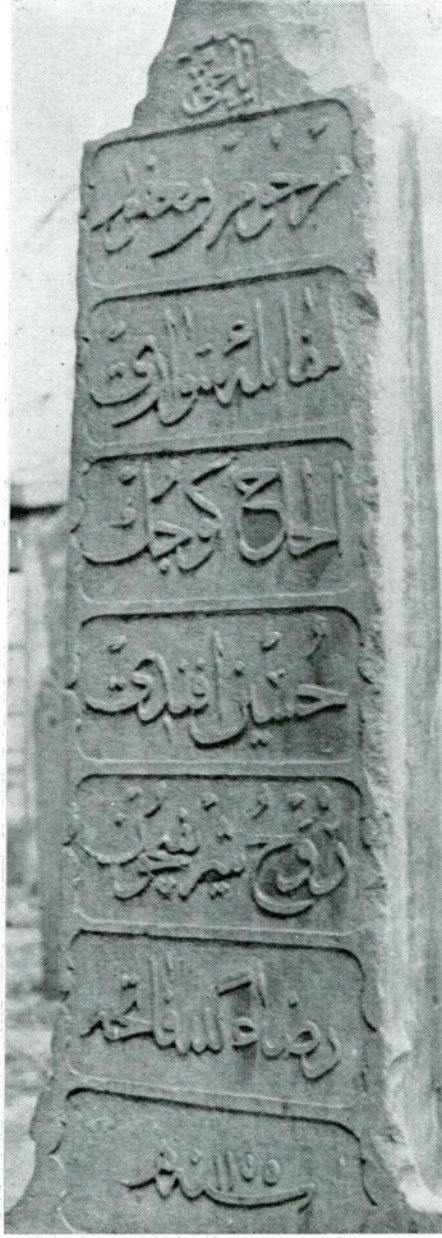 يا حق
مرحوم و مغفور
مقابله سواری
الحاج كوچك
حسين افندی
روح شريفيچون
رضاء لله فاتحه
سنه ١١٥٥